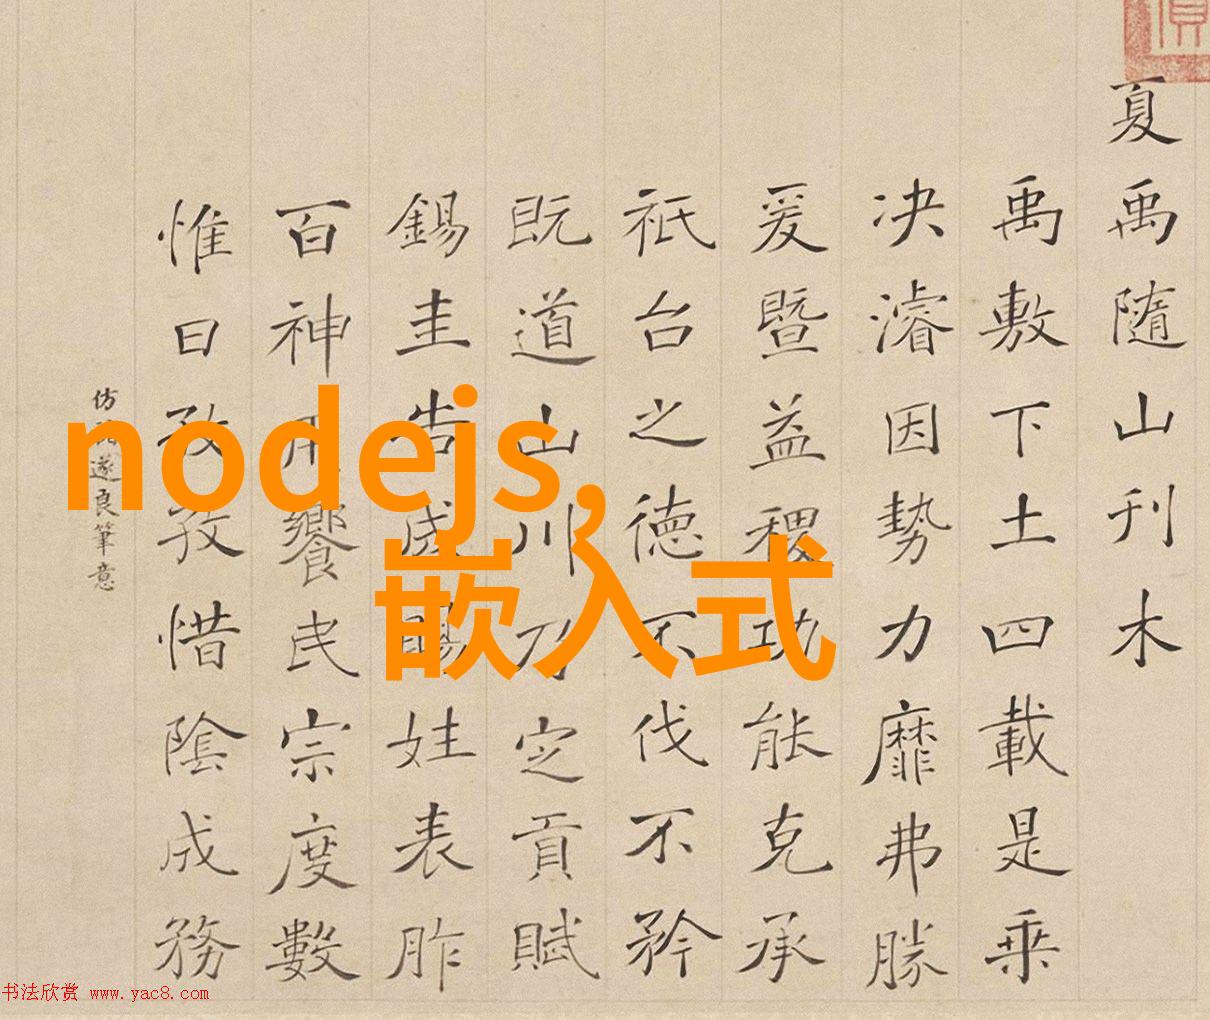 夏禹隨山刊木
禹敷下土四載是乗
决濬因勢力靡弗勝
爰暨益稷功能克承
祇台之德不伐不矜
既道山川乃定貢賦
錫圭告成賜姓表胙
百神用饗民宗度數
惟日孜孜惜陰成務
仿褚遂良筆意
nodejs,
嵌入式
书法欣赏 www.yac8.com